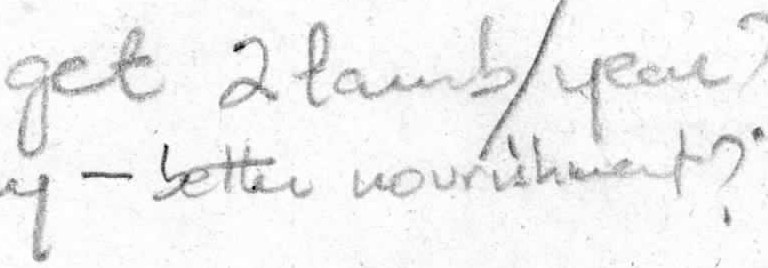 get 2 lamb/year?
y - better nourishment?